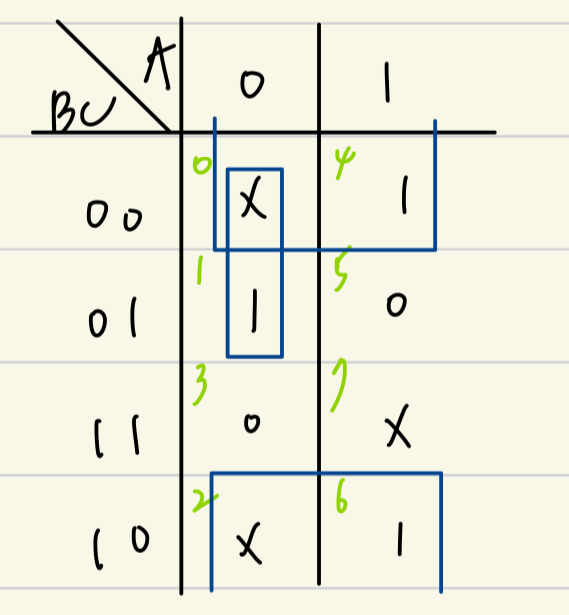 A
BC
0 1
00 0 X 4 1
01 1 1 5 0
11 3 0 7 X
10 2 X 6 1